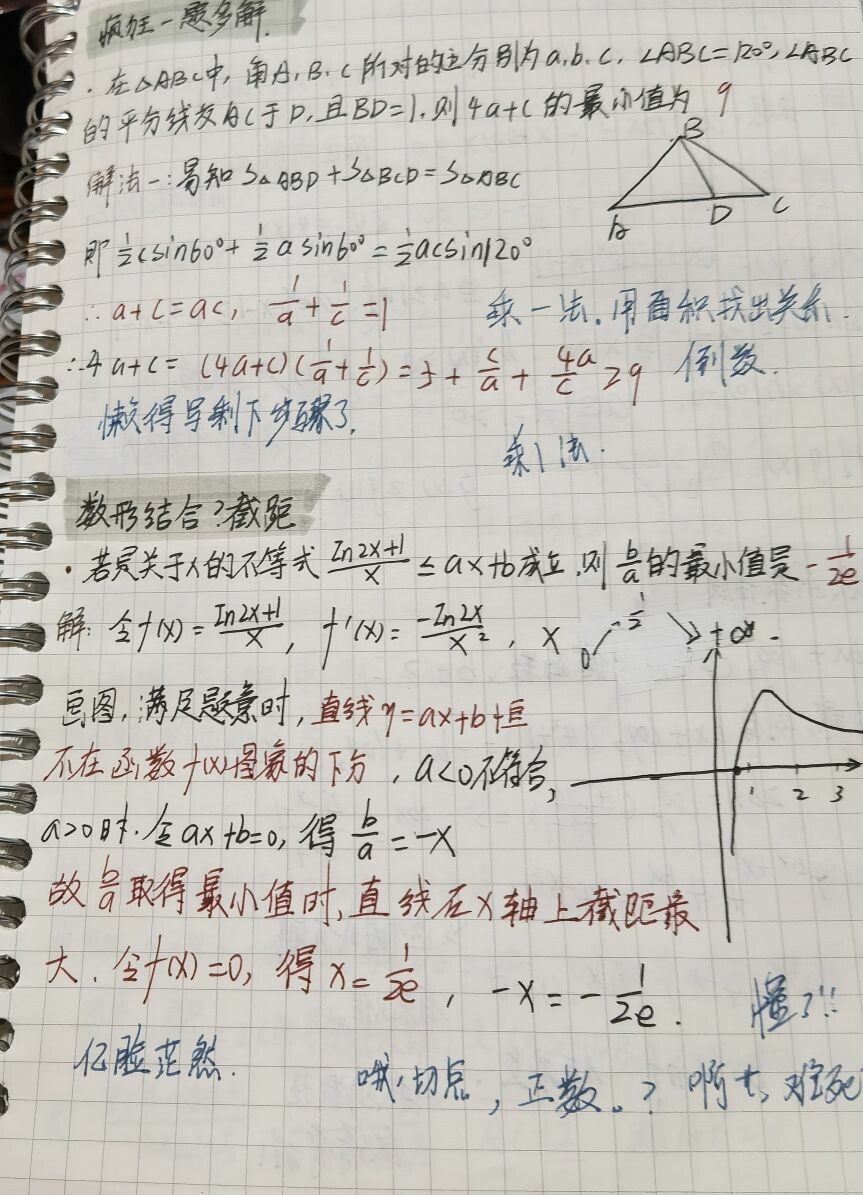 疯狂一题多解.
·在△ABC中,角A,B,C所对的边分别为a,b,c,∠ABC=120°,∠ABC
的平分线交AC于D,且BD=1.则4a+c的最小值为 9
解法一:易知S△ABD+S△BCD=S△ABC
B
A D C
即½csin60°+½asin60°=½acsin120°
∴a+c=ac, 1/a+1/c=1 乘一法.用面积找出关系.
∴4a+c=(4a+c)(1/a+1/c)=5+c/a+4a/c≥9 倒数.
懒得写剩下步骤了.
乘1法.
数形结合?截距
·若是关于x的不等式 ln2x+1/x ≤ax+b成立,则 b/a 的最小值是 -1/2e
解:令f(x)=ln2x+1/x, f'(x)=-ln2x/x², x 0↗½↘+∞.
画图,满足题意时,直线y=ax+b恒
不在函数f(x)图象的下方,a<0不符合,
1 2 3
a>0时.令ax+b=0,得 b/a=-x
故 b/a 取得最小值时,直线在x轴上截距最
大.令f(x)=0,得x=1/2e, -x=-1/2e. 懂了!!
亿脸茫然.
哦,切点,正数。?啊